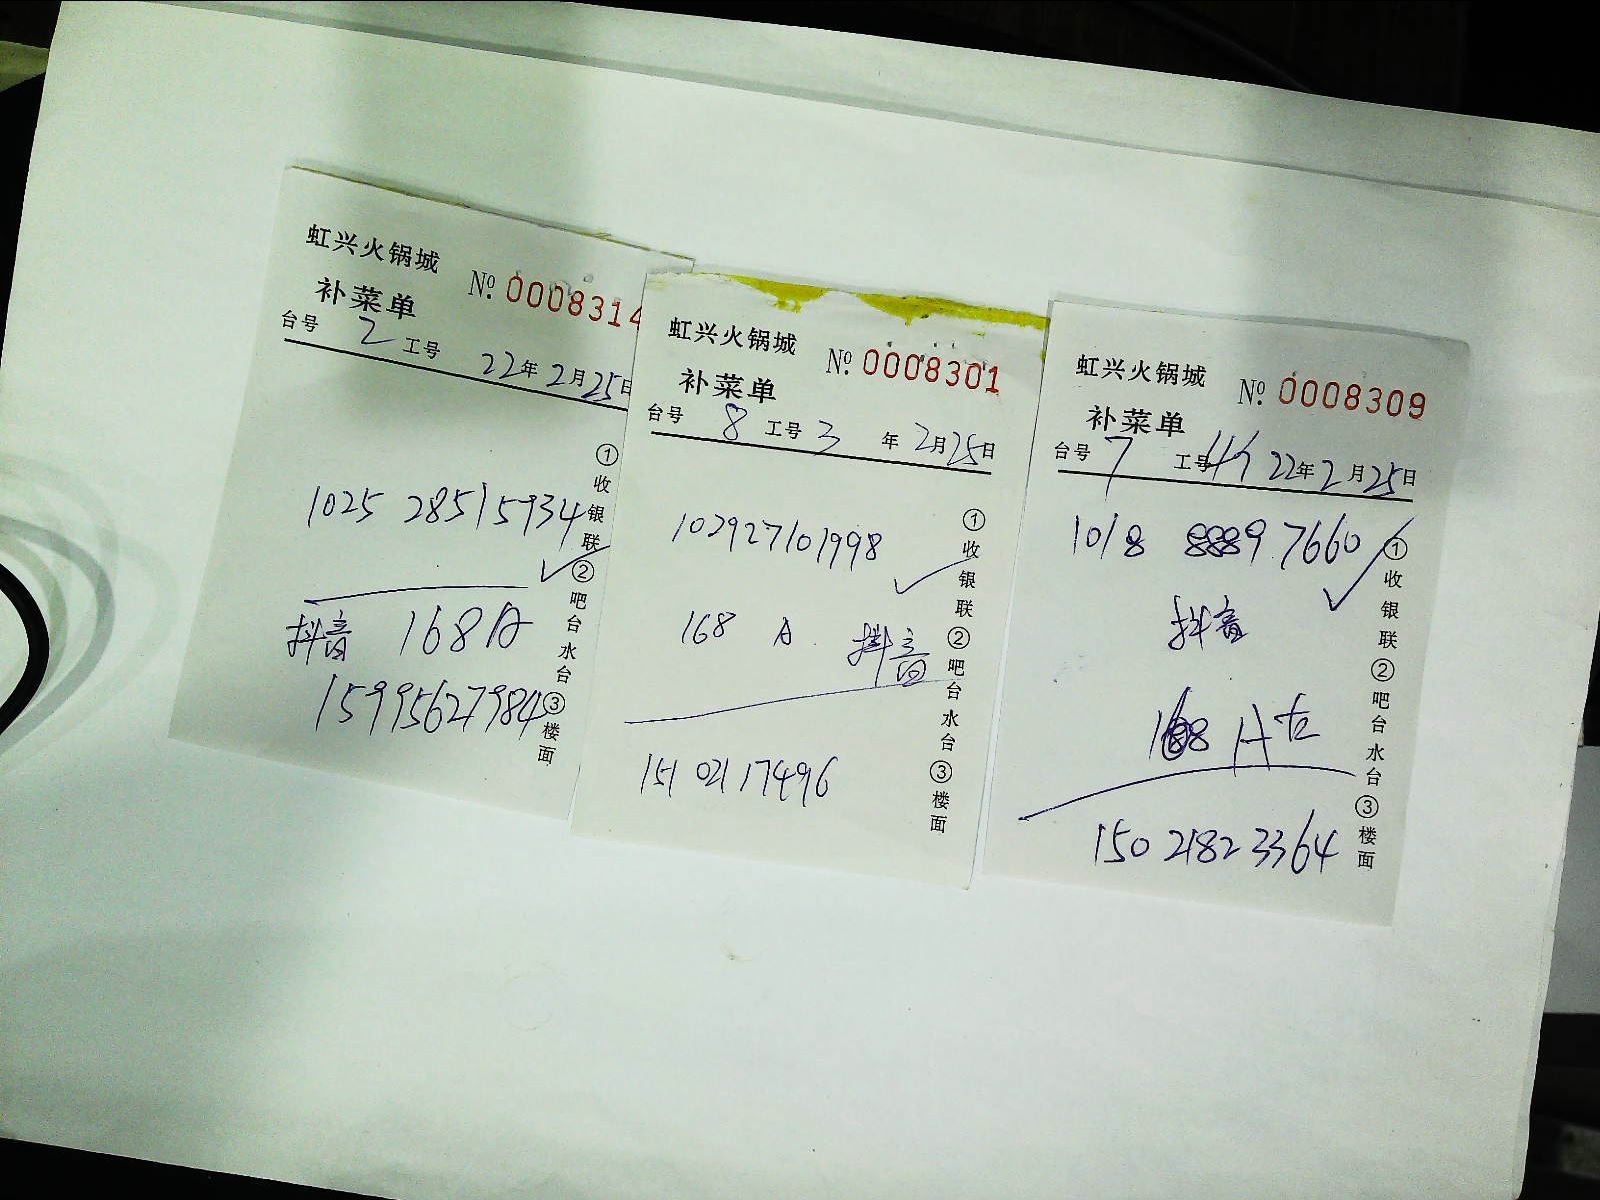 虹兴火锅城
№ 0008314
补菜单
台号 2 工号 22年2月25日
1025 28515934
抖音 168A
15995627984
①收银联②吧台水台③楼面
虹兴火锅城
№ 0008301
补菜单
台号 8 工号 3 年2月25日
102927101998
168 A 抖音
151 0217496
①收银联②吧台水台③楼面
虹兴火锅城
№ 0008309
补菜单
台号 7 工号 22年2月25日
1018 8889 7660
抖音
168 A
150 2182 3364
①收银联②吧台水台③楼面